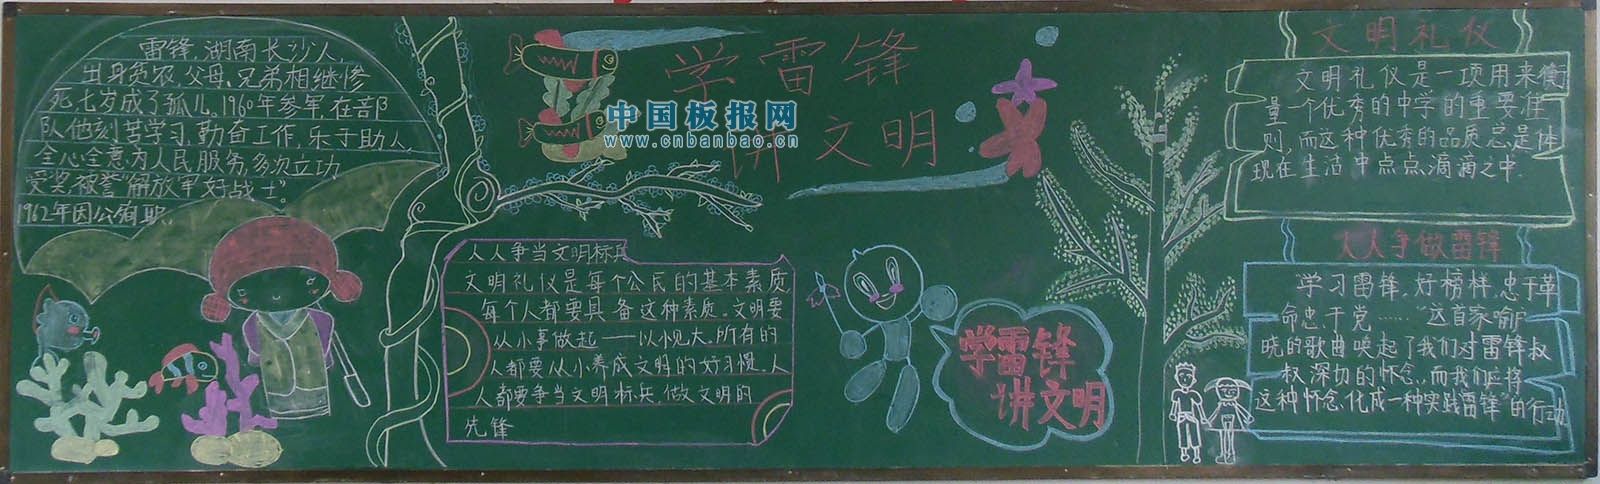 雷锋,湖南长沙人,
出身贫农,父母、兄弟相继惨
死七岁成了孤儿。1960年参军,在部
队他刻苦学习,勤奋工作,乐于助人,
全心全意为人民服务,多次立功
受奖被誉“解放军好战士”。
1962年因公殉职,
学雷锋
讲文明
中国板报网
www.cnbanbao.cn
人人争当文明标兵
文明礼仪是每个公民的基本素质,
每个人都要具备这种素质。文明要
从小事做起——以小见大。所有的
人都要从小养成文明的好习惯,人
人都要争当文明标兵,做文明的
先锋
学雷锋
讲文明
文明礼仪
文明礼仪是一项用来衡
量一个优秀的中学的重要准
则,而这种优秀的品质总是体
现在生活中点点滴滴之中.
人人争做雷锋
学习雷锋,好榜样,忠于革
命忠于党……“这首家喻户
晓的歌曲唤起了我们对雷锋叔
叔深切的怀念,而我们应将
这种怀念,化成一种实践雷锋”的行动